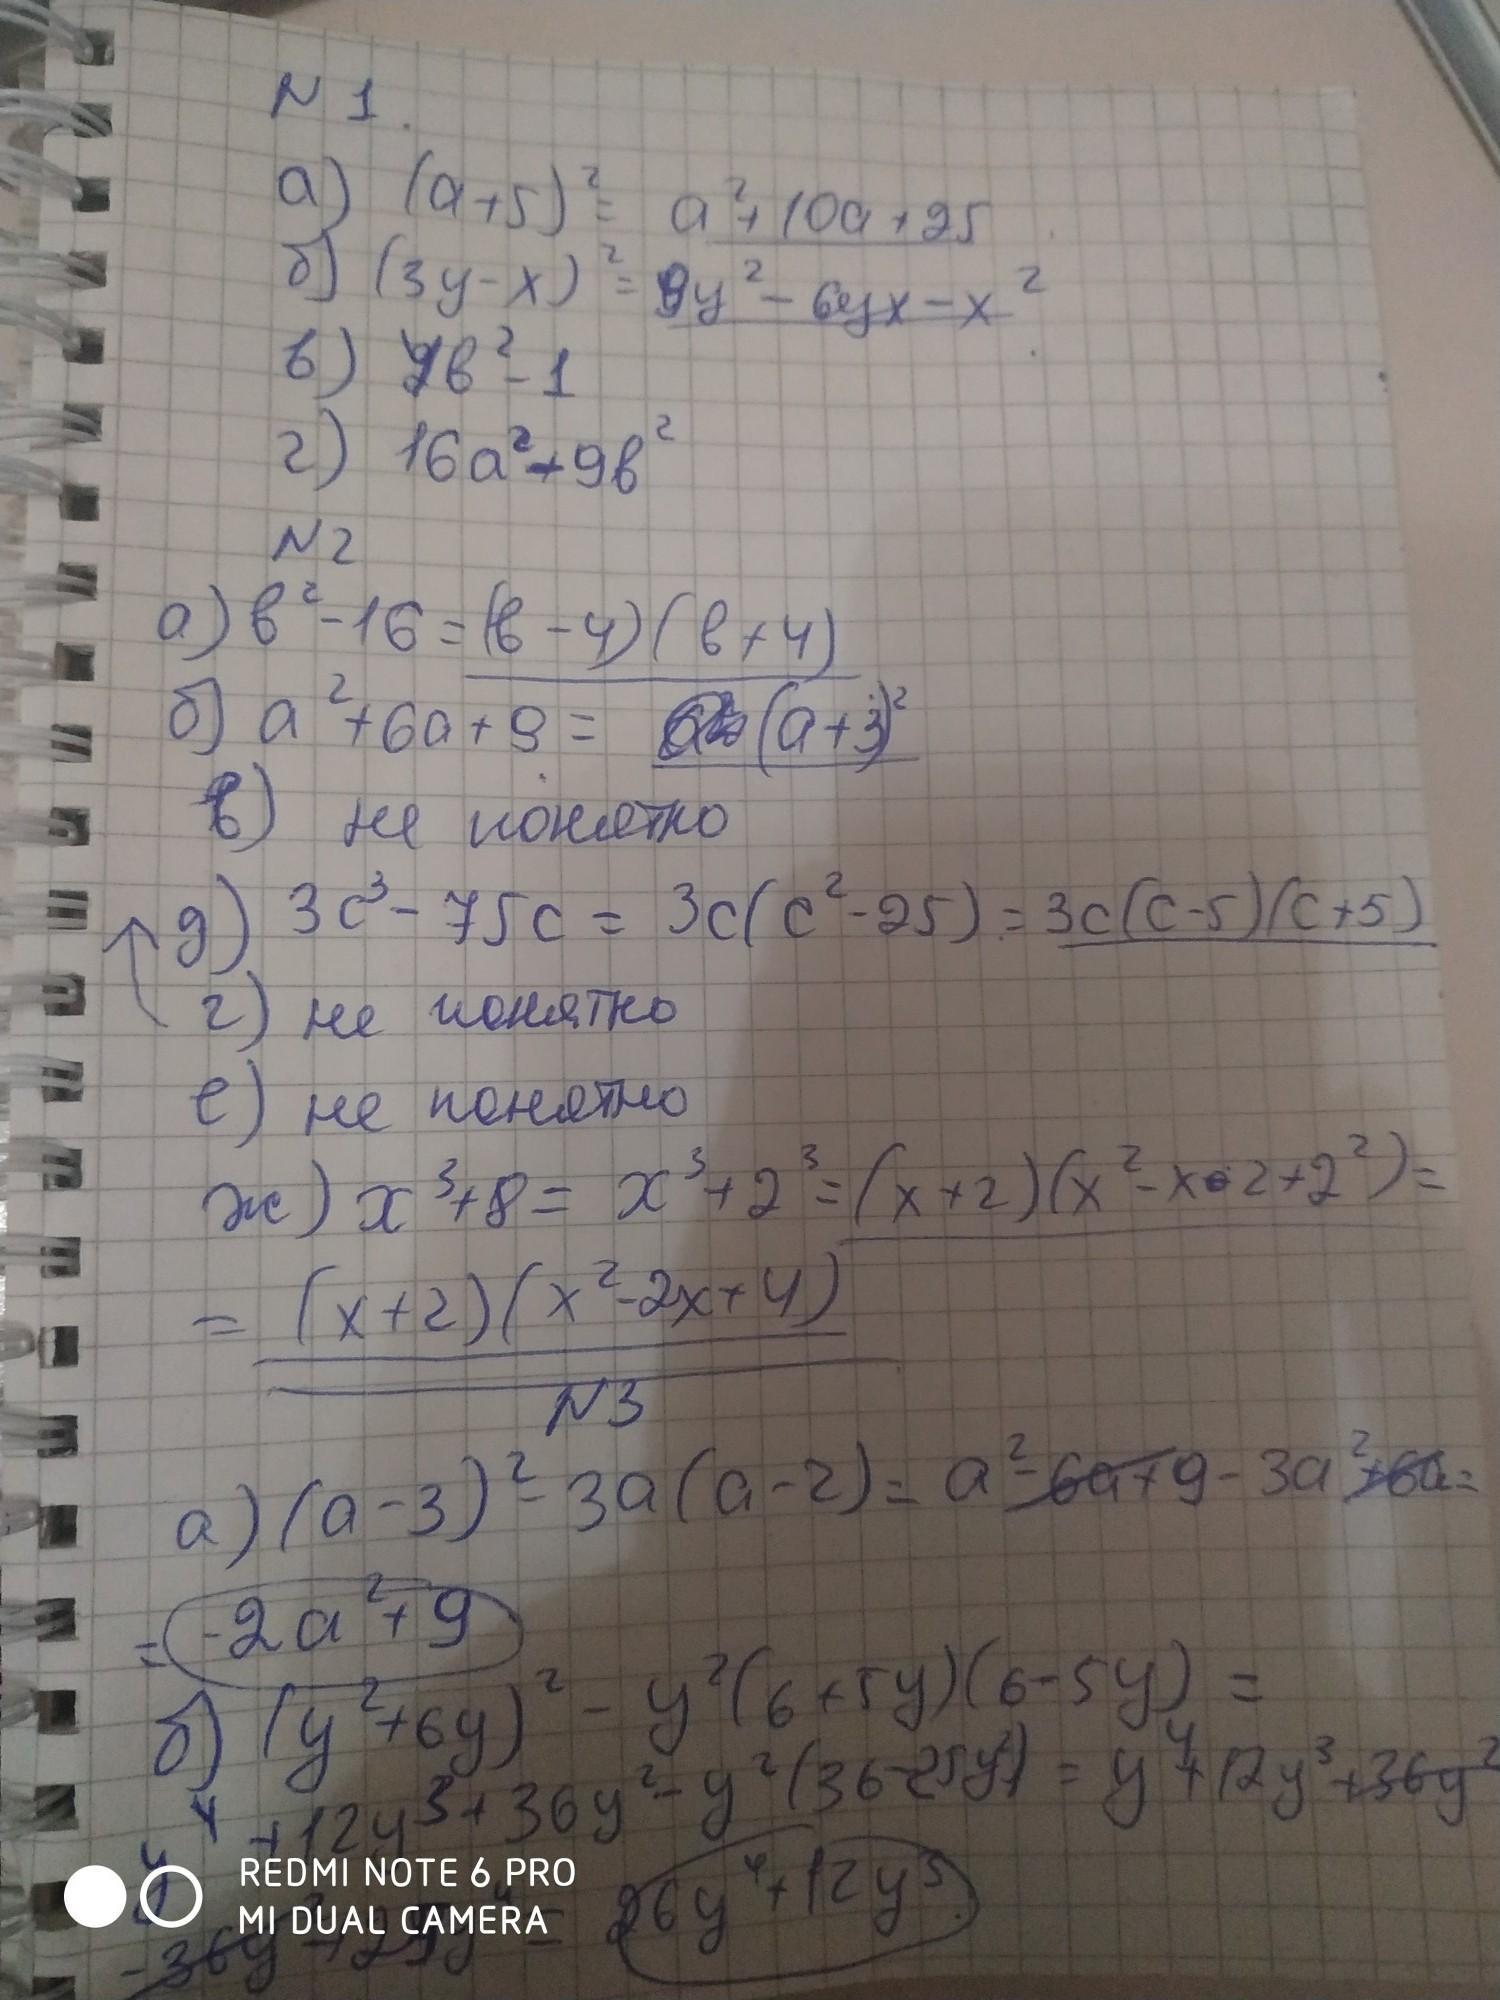 N 1.
а) (a+5)² = a²+10a+25
б) (3y-x)² = 9y² - 6yx - x²
в) b² - 1
г) 16a² + 9b²
N 2
а) b² - 16 = (b - 4)(b + 4)
б) a² + 6a + 9 = (a+3)²
в) не понятно
д) 3c³ - 75c = 3c(c² - 25) = 3c(c-5)(c+5)
г) не понятно
е) не понятно
ж) x³+8 = x³+2³ = (x+2)(x² - x•2+2²) =
= (x+2)(x²-2x+4)
N3
а) (a-3)² - 3a(a-2) = a² - 6a+9 - 3a²+6a =
= -2a²+9
б) (y²+6y)² - y²(6+5y)(6-5y) =
y⁴ +12y³+36y² - y²(36-25y²) = y⁴+12y³+36y²
-36y²+25y⁴ = 26y⁴+12y³
REDMI NOTE 6 PRO
MI DUAL CAMERA